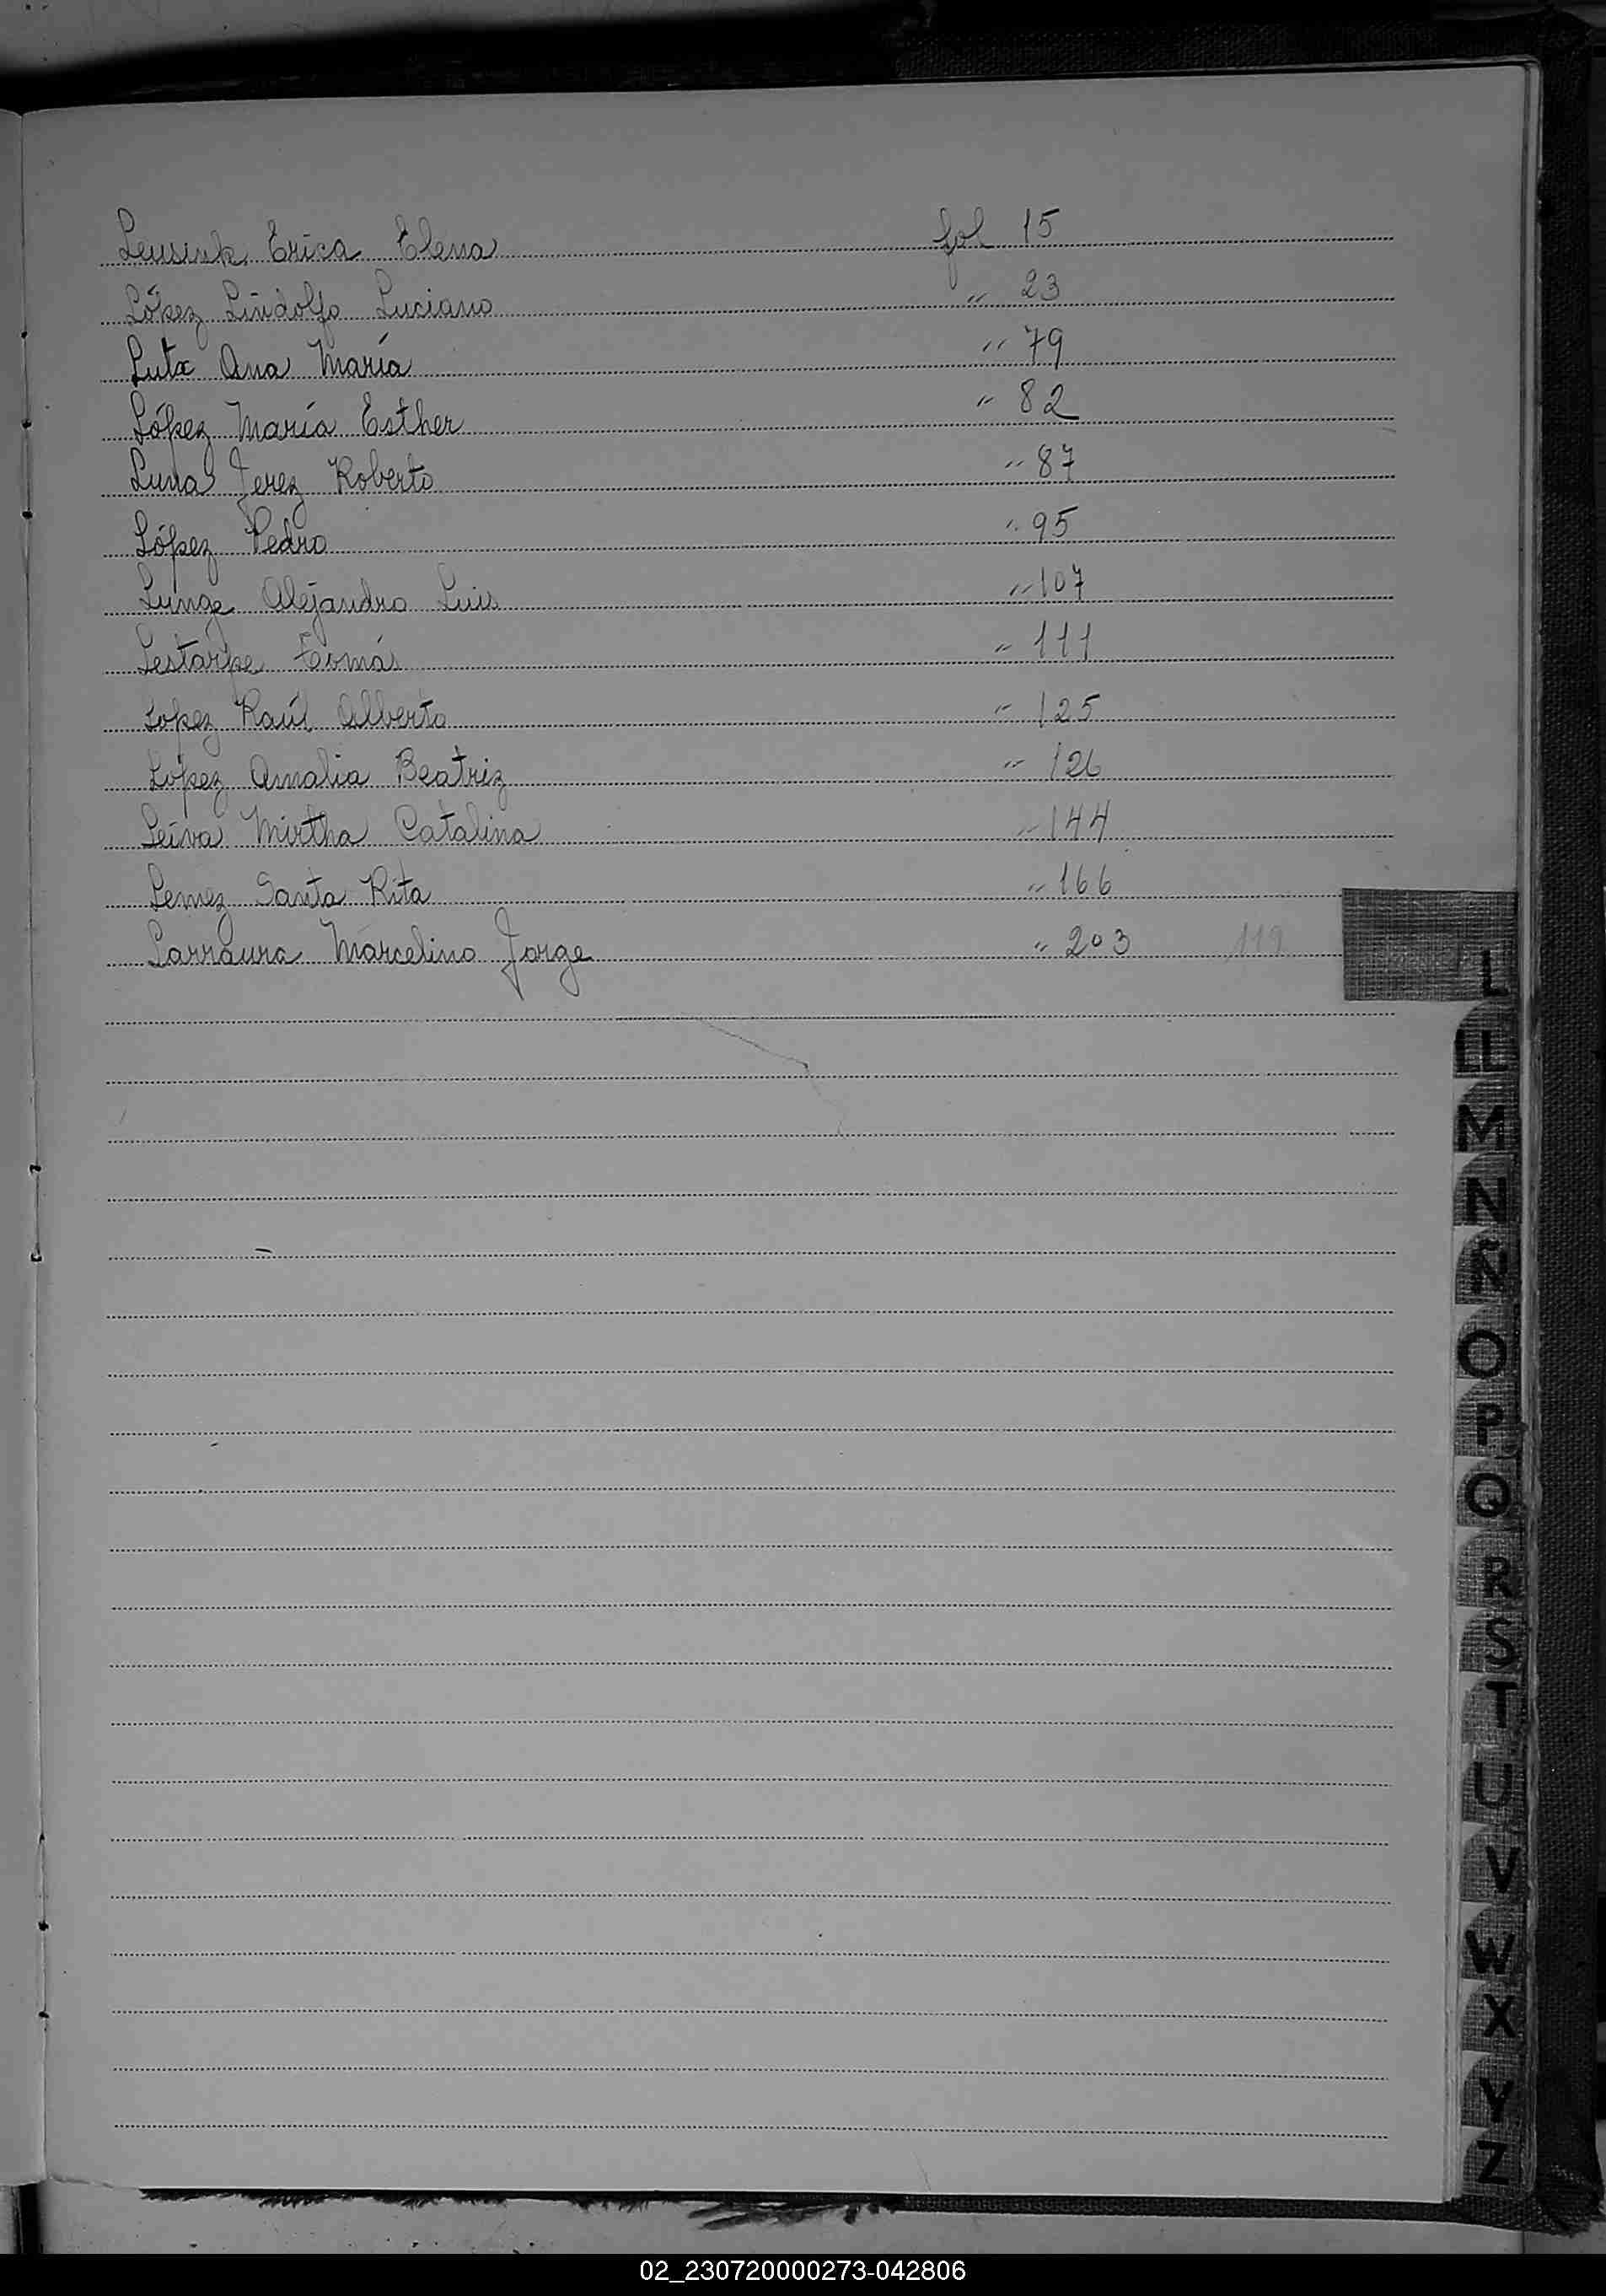 Leusink Erica Elena fol 15
López Lindolfo Luciano " 23
Lutz Ana María " 79
López María Esther " 82
Luna Jerez Roberto " 87
López Pedro " 95
Lunge Alejandro Luis " 107
Lestarpe Tomás " 111
Lopez Raúl Alberto " 125
López Amalia Beatriz " 126
Leiva Mirtha Catalina " 144
Lemez Santa Rita " 166
Larraura Marcelino Jorge " 203 119
L
LL
M
N
Ñ
O
P
Q
R
S
T
U
V
W
X
Y
Z
02_230720000273-042806